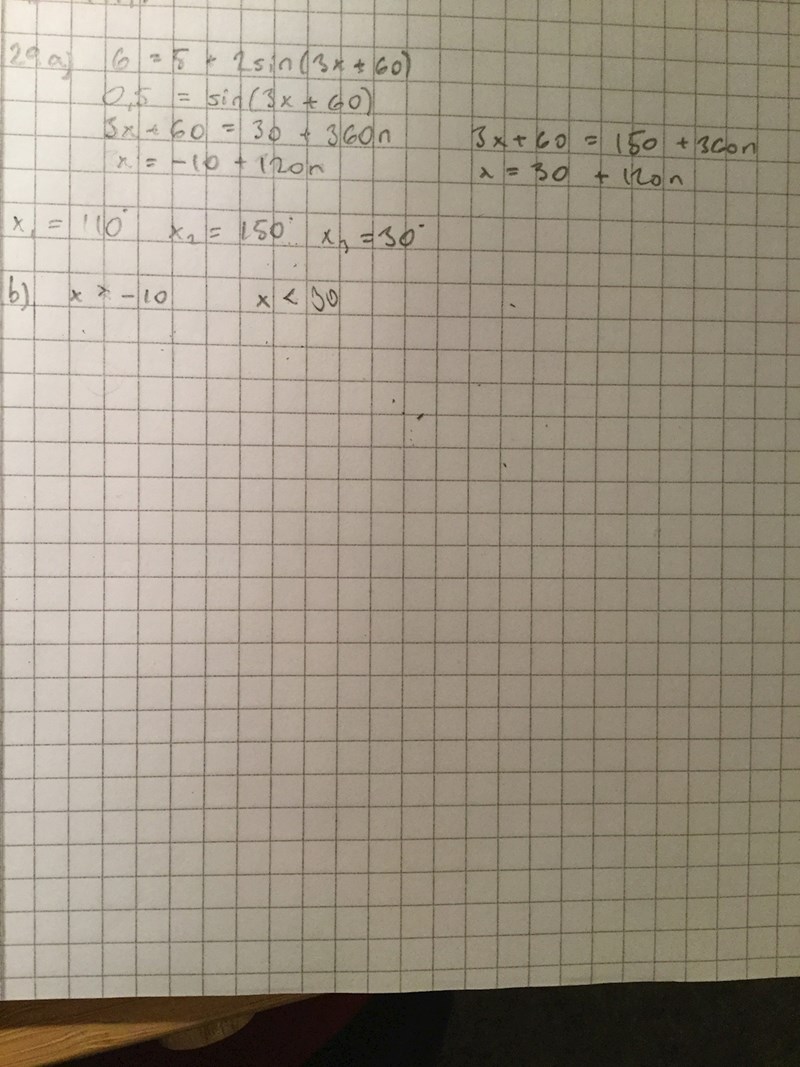 29 a) 6 = 5 + 2sin(3x + 60)
0,5 = sin(3x + 60)
3x + 60 = 30 + 360n
3x + 60 = 150 + 360n
x = -10 + 120n
x = 30 + 120n
x₁ = 110° x₂ = 150° x₃ = 30°
b) x > -10 x < 30